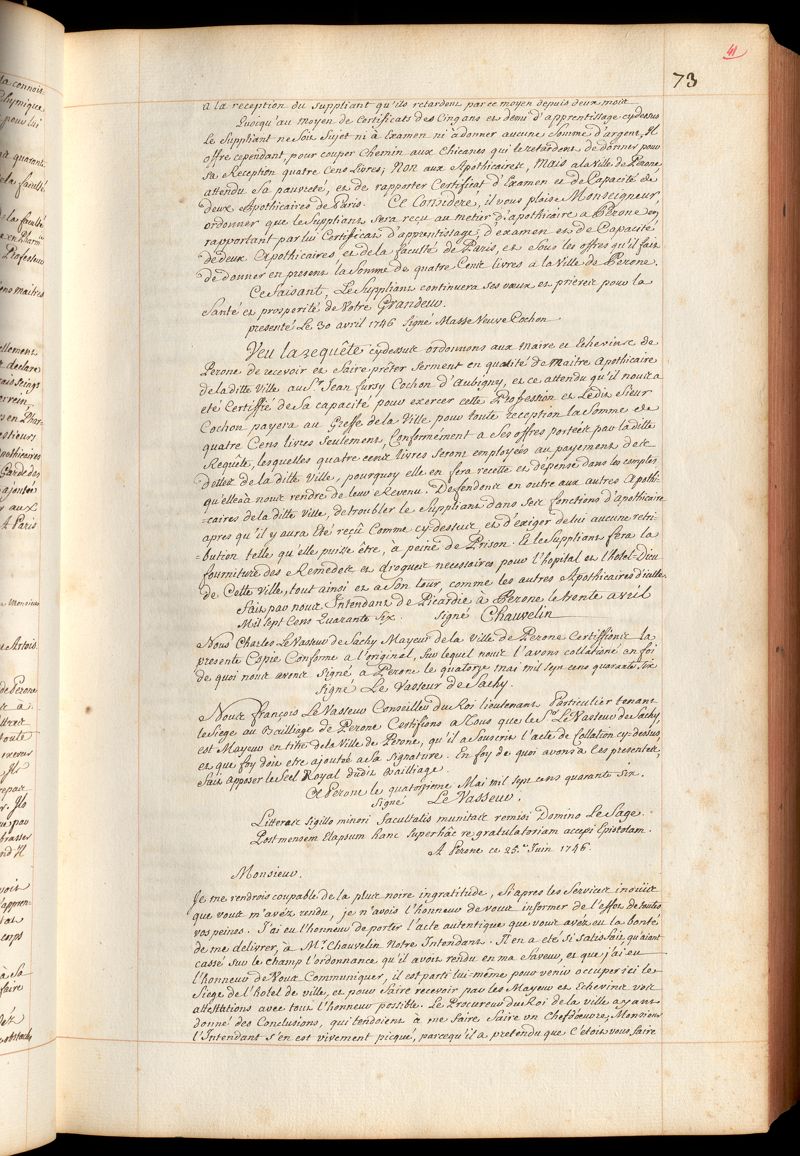 41
73
a la reception du Suppliant qu'ils retardent par ce moyen depuis deux mois
Quoiqu'au moyen de Certificats des Cinq ans et demi d'apprentissage cydessus
Le Suppliant ne soit Sujet ni à Examen ni à donner aucune Somme d'argent, Il
offre cependant, pour couper Chemin aux Chicanes qui le retardent de donner pour
sa Reception quatre Cens Livres, non aux Apothicaires, Mais a la Ville de Perone
attendu sa pauvreté, et de rapporter Certificat d'Examen et de Capacité de
deux Apothicaires de Paris. Ce Considéré, il vous plaise Monseigneur,
ordonner que le Suppliant sera reçu au metier d'apothicaire a Perone en,
rapportant par lui Certificat d'apprentissage, d'examen et de Capacité
de deux Apothicaires et de la faculté de Paris, et sous les offres qu'il fait
de donner en present la Somme de quatre Cent livres a la Ville de Perone.
Ce faisant, Le Suppliant continuera ses vœux et prieres pour la
Santé et prosperité de Votre Grandeur.
presenté Le 30 avril 1746 Signé Masse Neuve Cochon
Veu la requête cydessus ordonnons aux Maire et Echevins de
Perone de recevoir et faire prêter Serment en qualité de Maitre Apothicaire
de la ditte Ville au Sr. Jean fursy Cochon d'Aubigny, et ce attendu qu'il nous a
eté Certiffié de Sa capacité pour exercer cette Profession et Ledit Sieur
Cochon payera au Greffe de la Ville pour toute reception la Somme de
quatre Cens livres Seulement, Conformément a Ses offres portées par la ditte
Requête, lesquelles quatre cens livres seront employées au payement des
dettes de la ditte Ville, pourquoy elle en fera recette et depense dans les comptes
qu'elle a à nous rendre de leur Revenu. Deffendons en outre aux autres Apothi-
=caires de la ditte Ville, de troubler le Suppliant dans ses fonctions d'Apothicaire
apres qu'il y aura Eté reçû Comme cy-dessus, et d'exiger de lui aucune retri-
bution telle qu'elle puisse être, à peine de Prison. Et le Suppliant fera la
fourniture des Remedes et drogues necessaires pour l'hopital et l'hotel-Dieu
de Cette Ville, tout ainsi et a Son tour, comme les autres Apothicaires d'icelle.
Fait par nous Intendant de Picardie à Perone le trente avril
Mil Sept Cens Quarante Six. Signé Chauvelin
Nous Charles Le Vasseur de Sachy Mayeur de la Ville de Perone Certiffions la
presente Copie Conforme a l'original, sur lequel nous l'avons collationé en foi
de quoi nous avons Signé a Perone le quatorze mai mil sept cens quarante Six
Signé Le Vasseur de Sachy.
Nous François Le Vasseur Conseiller du Roi lieutenant Particulier tenant
le Siege au Bailliage de Perone Certifions a tous que le Sr. Le Vasseur de Sachy,
est Mayeur en titre de la Ville de Perone, qu'il a Souscrit l'acte de Collation cy-dessus,
et que foy doit etre ajoutée a Sa Signature. En foy de quoi avons a Ces presentes,
fait apposer le Scel Royal dudit Bailliage.
A Perone le quatorzieme Mai mil Sept cens quarante Six.
Signé Le Vasseur.
Litteras Sigillo minori facultatis munitas remisi Domino Le Sage
Post mensem Elapsum hanc superhâc re gratulatoriam accepi Epistolam.
A Perone ce 25e. Juin 1746.
Monsieur.
Je me rendrois coupable de la plus noire ingratitude, Si apres les Services inoüis
que vous m'avéz rendu, je n'avois l'honneur de vous informer de l'effet de toutes
vos peines. J'ai eu l'honneur de porter l'acte autentique que vous avéz eu la bonté
de me delivrer, à Mr. Chauvelin Notre Intendant. Il en a eté Si Satisfait, qu'aiant
cassé sur le Champ l'ordonnance qu'il avois rendu en ma faveur, et que j'ai eu
l'honneur de Vous Communiquer, il est parti lui-même pour venir occuper ici le
Siege de l'hotel de ville, et pour faire recevoir par les Mayeur et Echevins vos
attestations avec tout l'honneur possible. Le Procureur du Roi de la ville ayant
donné des Conclusions, qui tendoient à me faire faire un Chefdœuvre, Monsieur
l'Intendant s'en est vivement picqué, parcequ'il a pretendu que C'étoit vous faire